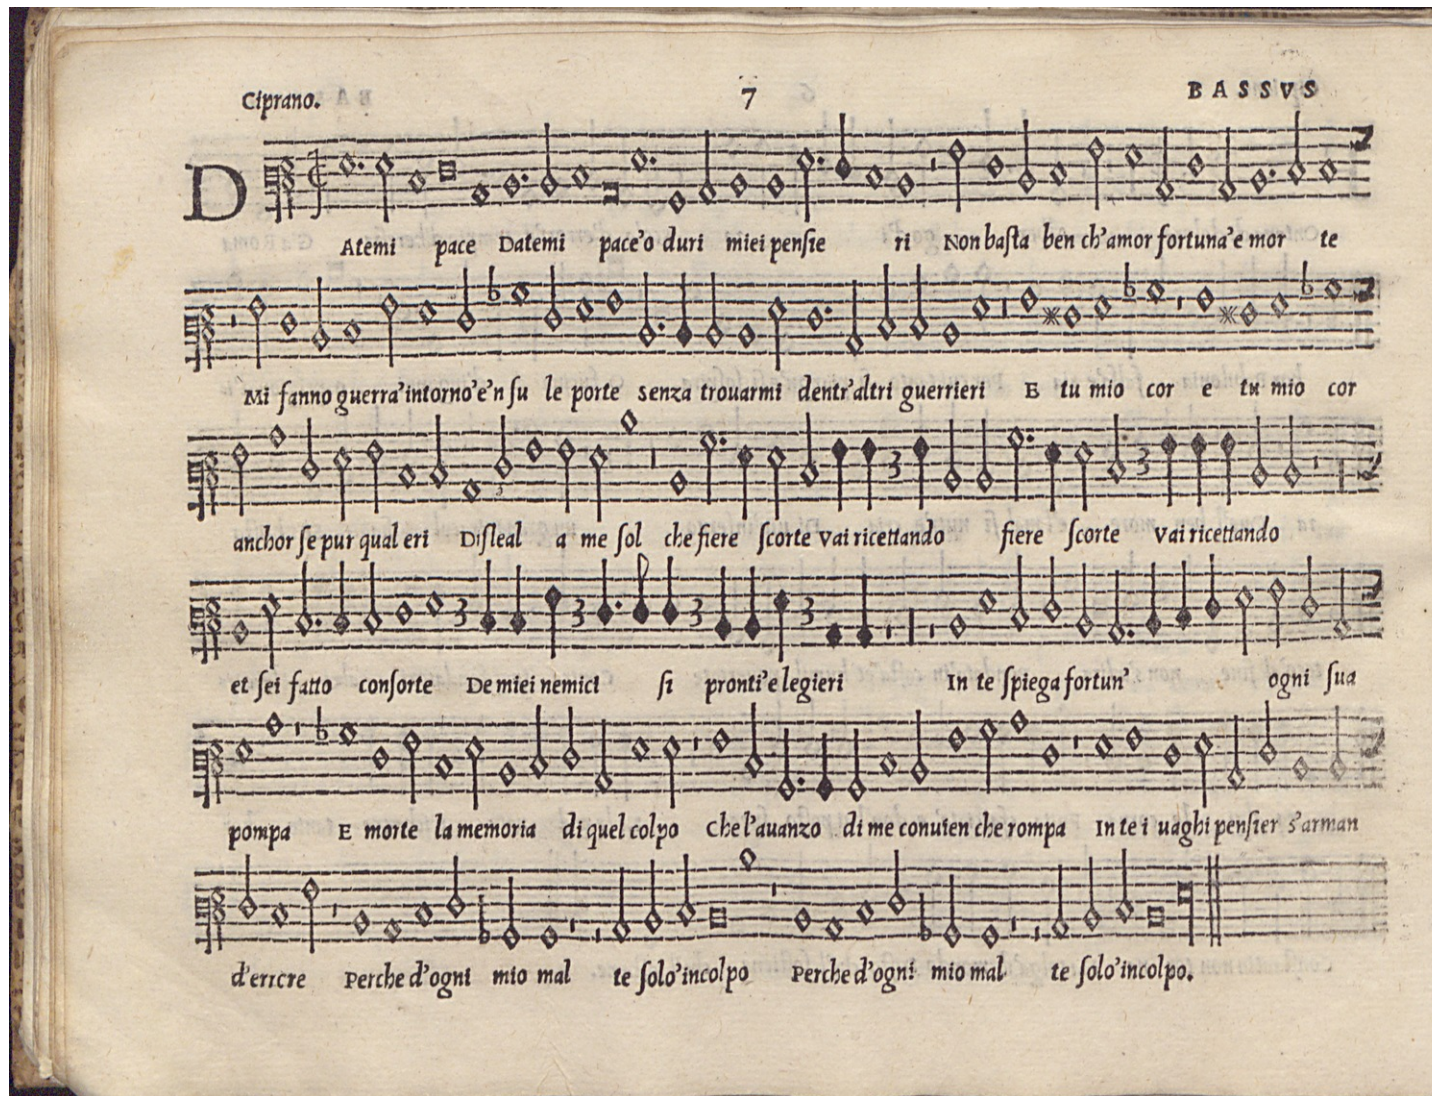 Ciprano. 7 BASSVS
DAtemi pace Datemi pace'o duri miei penſie ri Non baſta ben ch'amor fortuna'e mor te
Mi fanno guerra'intorno'e'n ſu le porte senza trouarmi dentr'altri guerrieri E tu mio cor e tu mio cor
anchor ſe pur qual eri Diſleal a me ſol che fiere ſcorte vai ricettando fiere ſcorte vai ricettando
et ſei fatto conſorte De miei nemici ſi pronti'e legieri In te ſpiega fortun' ogni ſua
pompa E morte la memoria di quel colpo Che l'auanzo di me conuien che rompa In te i uaghi penſier s'arman
d'errcre Perche d'ogni mio mal te ſolo'incolpo Perche d'ogni mio mal te ſolo'incolpo.